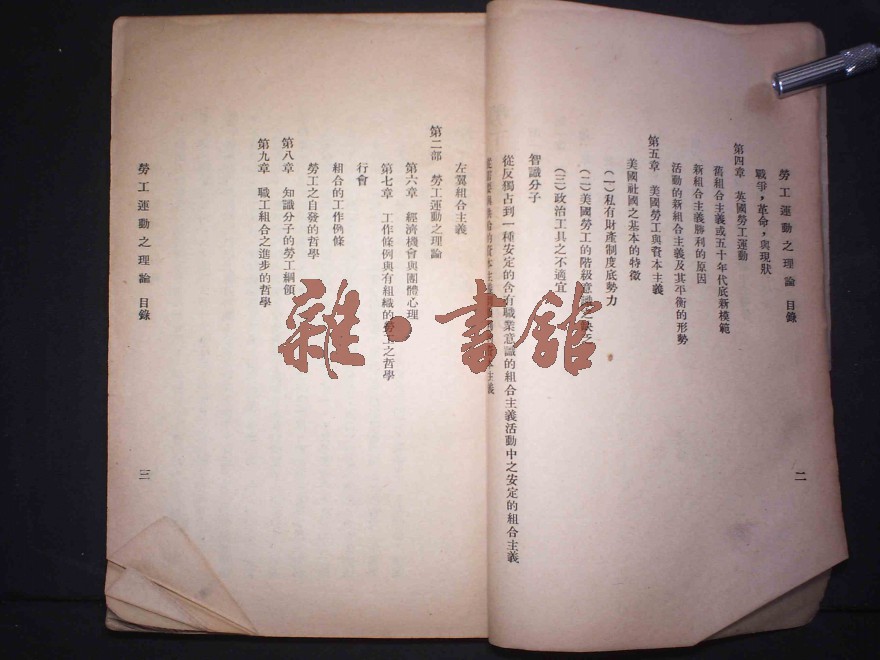 勞工運動之理論 目錄
二
戰爭，革命，與現狀
第四章 英國勞工運動
舊組合主義或五十年代底新模範
新組合主義勝利的原因
活動的新組合主義及其平衡的形勢
第五章 美國勞工與資本主義
美國社國之基本的特徵
(一)私有財產制度底勢力
(二)美國勞工的階級意識之缺乏
(三)政治工具之不適宜
智識分子
從反獨占到一種安定的含有職業意識的組合主義活動中之安定的組合主義
左翼組合主義
第二部 勞工運動之理論
第六章 經濟機會與團體心理
第七章 工作條例與有組織的勞工之哲學
行會
組合的工作例條
勞工之自發的哲學
第八章 知識分子的勞工綱領
第九章 職工組合之進步的哲學
勞工運動之理論 目錄
三
雜·書館